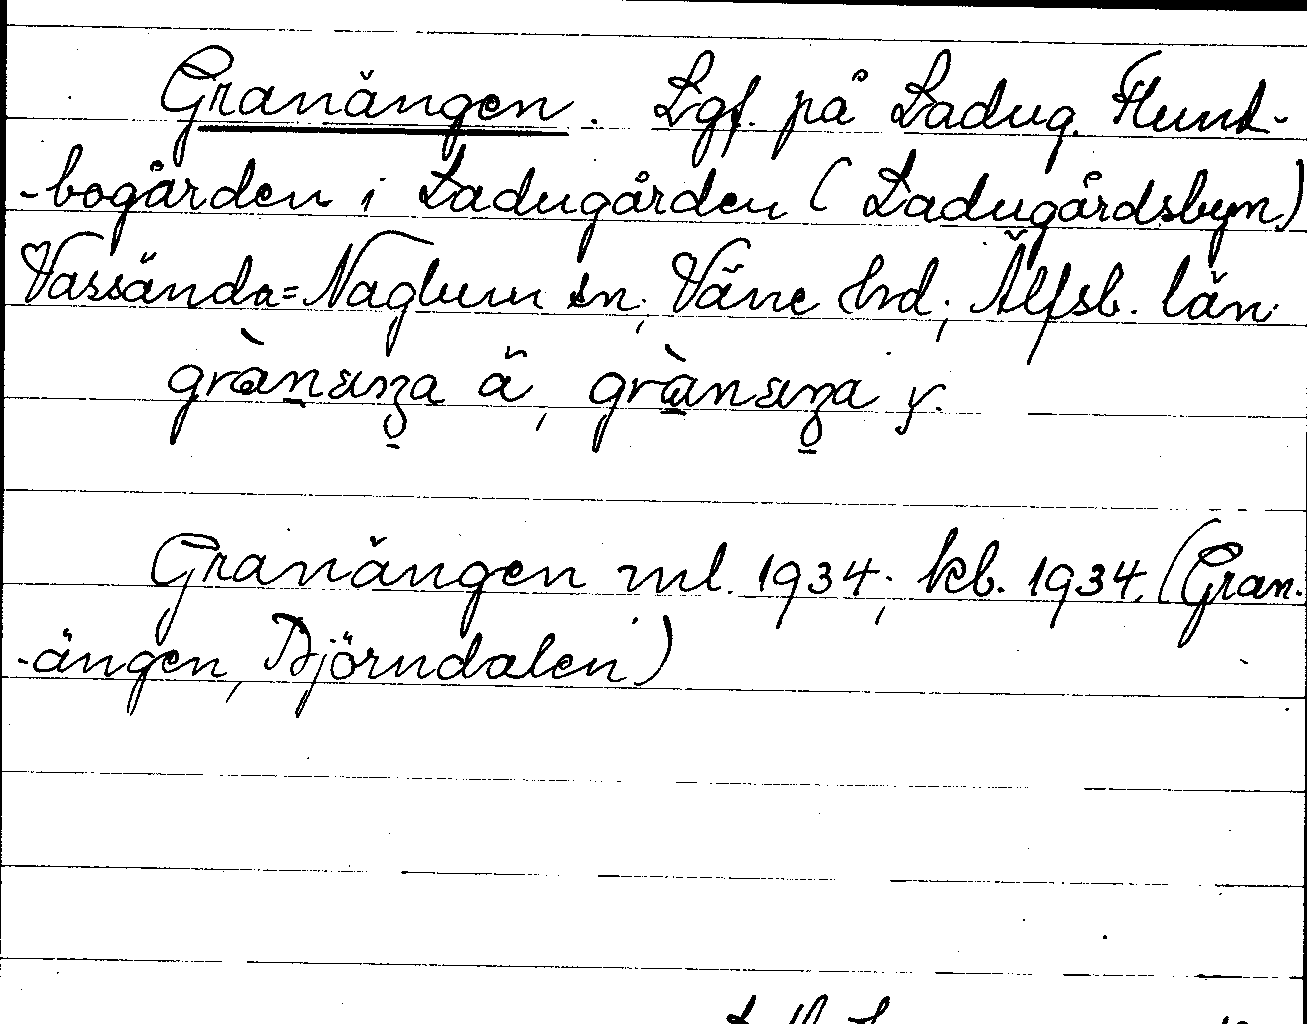 Granängen. Lgf. på Ladug. Hund-
-bogården i Ladugården (Ladugårdsbyn)
Vassända=Naglum sn; Väne hd; Älfsb. län
grànæŋa ä, grànæŋa y.
Granängen ml. 1934; kb. 1934 (Gran-
-ängen, Björndalen)